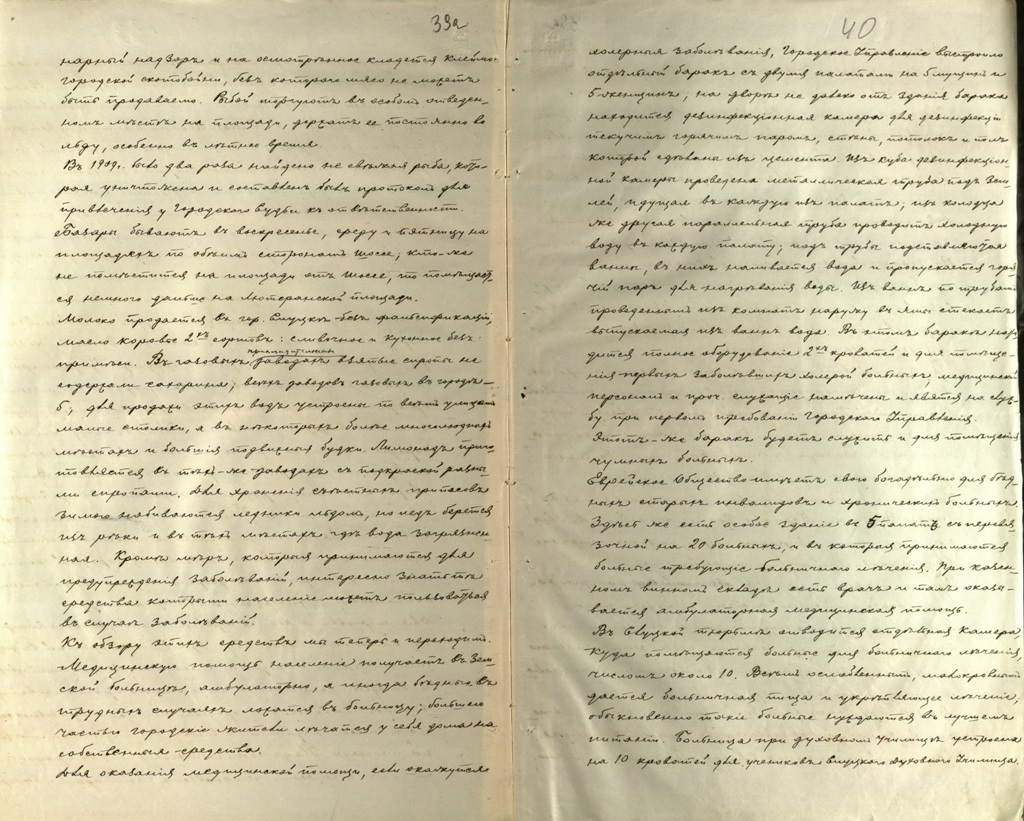 39а
нарный надзоръ и на осмотрѣнное кладется клеймо
городской скотобойни, безъ котораго мясо не можетъ
быть продаваемо. Рыбой торгуютъ въ особомъ отведен-
номъ мѣстѣ на площади, держатъ ее постоянно во
льду, особенно въ лѣтнее время.
Въ 1909г. было два раза найдено не свѣжая рыба, кото-
рая уничтожена и составленъ былъ протоколъ для
привлеченія у Городского Судьи къ отвѣтственности.
Базары бываютъ въ воскресенье, среду и пятницу на
площадяхъ по обѣимъ сторонамъ шоссе; кто-же
не помѣстится на площади отъ шоссе, то помѣщает-
ся немного дальше на Лютеранской площади.
Молоко продается въ гор. Слуцкѣ безъ фальсификаціи,
масло коровье 2хъ сортовъ: сливочное и кухонное безъ
примѣси. Въ газовыхъ заводахъ взятые сиропы не
содержали сахарина; всѣхъ заводовъ газовыхъ въ городѣ –
5; для продажи этихъ водъ устроены по всѣмъ улицамъ
малые столики, а въ нѣкоторыхъ болѣе многолюдныхъ
мѣстахъ и большія подвижныя будки. Лимонадъ приго-
товляется въ тѣхъ-же заводахъ съ подкраской разны-
ми сиропами. Для храненія съѣстныхъ припасовъ
зимою набиваются ледники льдомъ, но ледъ берется
изъ рѣки и въ тѣхъ мѣстахъ гдѣ вода загрязнен-
ная. Кромѣ мѣръ, которыя принимаются для
предупрежденія заболѣваній, интересно знать тѣ
средства которыми населеніе можетъ пользоваться
въ случаѣ заболѣваній.
Къ обзору этихъ средствъ мы теперь и переходимъ.
Медицинскую помощь населеніе получаетъ въ Зем-
ской больницѣ, амбулаторно, а иногда бѣдные въ
трудныхъ случаяхъ ложатся въ больницу; большею
частью городскіе жители лѣчатся у себя дома на
собственныя средства.
Для оказанія медицинской помощи, если окажутся
40
холерныя заболѣванія, Городское Управленіе выстроило
отдѣльный баракъ съ двумя палатами на 5 мущинъ и
5-женщинъ; на дворѣ не далеко отъ зданія барака
находится дезинфекціонная камера для дезинфекціи
текучимъ горячимъ паромъ, стѣны, потолокъ и полъ
которой сдѣланы изъ цемента. Изъ куба дезинфекціон-
ной камеры проведена металлическая труба подъ зем-
лей, идущая въ каждую изъ палатъ; изъ колодца
же другая параллельная труба проводитъ холодную
воду въ каждую палату; подъ трубы подставляются
ванны, въ нихъ наливается вода и пропускается горя-
чій паръ для нагрѣванія воды. Изъ ваннъ по трубамъ
проведеннымъ изъ комнатъ наружу въ ямы стекаетъ
выпускаемая изъ ваннъ вода. Въ этомъ баракѣ нахо-
дится полное оборудованіе 2хъ кроватей и для помѣще-
нія первыхъ заболѣвшихъ холерой больныхъ, медицинскій
персоналъ и проч. служащіе намѣчены и явятся на служ-
бу при первомъ требованіи Городского Управленія.
Этотъ-же баракъ будетъ служить и для помѣщенія
чумныхъ больныхъ.
Еврейское Общество имѣетъ свою богадѣльню для бѣд-
ныхъ старыхъ инвалидовъ и хроническихъ больныхъ.
Здѣсь же есть особое зданіе въ 5 палатъ съ перевя-
зочной на 20 больныхъ, и въ которыя принимаются
больные требующіе больничнаго лѣченія. При казен-
номъ винномъ складѣ есть врачъ и тамъ оказы-
вается амбулаторная медицинская помощь.
Въ Слуцкой тюрьмѣ отводится отдѣльная камера,
куда помѣщаются больные для больничнаго лѣченія,
числомъ около 10. Всѣмъ ослабленнымъ, малокровнымъ
дается больничная пища и укрѣпляющее лѣченіе,
обыкновенно такіе больные нуждаются въ лучшемъ
питаніи. Больница при духовномъ училищѣ устроена
на 10 кроватей для учениковъ Слуцкаго Духовнаго Училища.